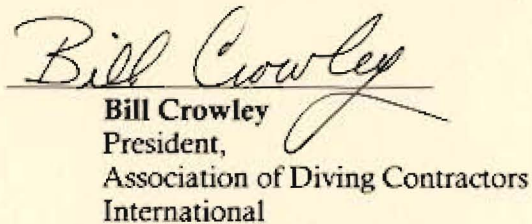 Bill Crowley
Bill Crowley
President,
Association of Diving Contractors
International